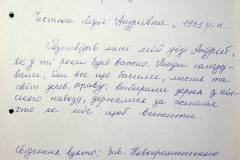 Честною Лідія Андріївна, 1935 р.н.
Розповідав мені мій дід Андрій,
як у ті роки було важко. Люди голоду-
вали, їли все що бачили, листя та
цвіт дерев, траву. Вибирали зерна з кін-
ського навозу, держалися за життя
хто як міг щоб вижити.
Свідчення взято: Зав. Новокрасненською